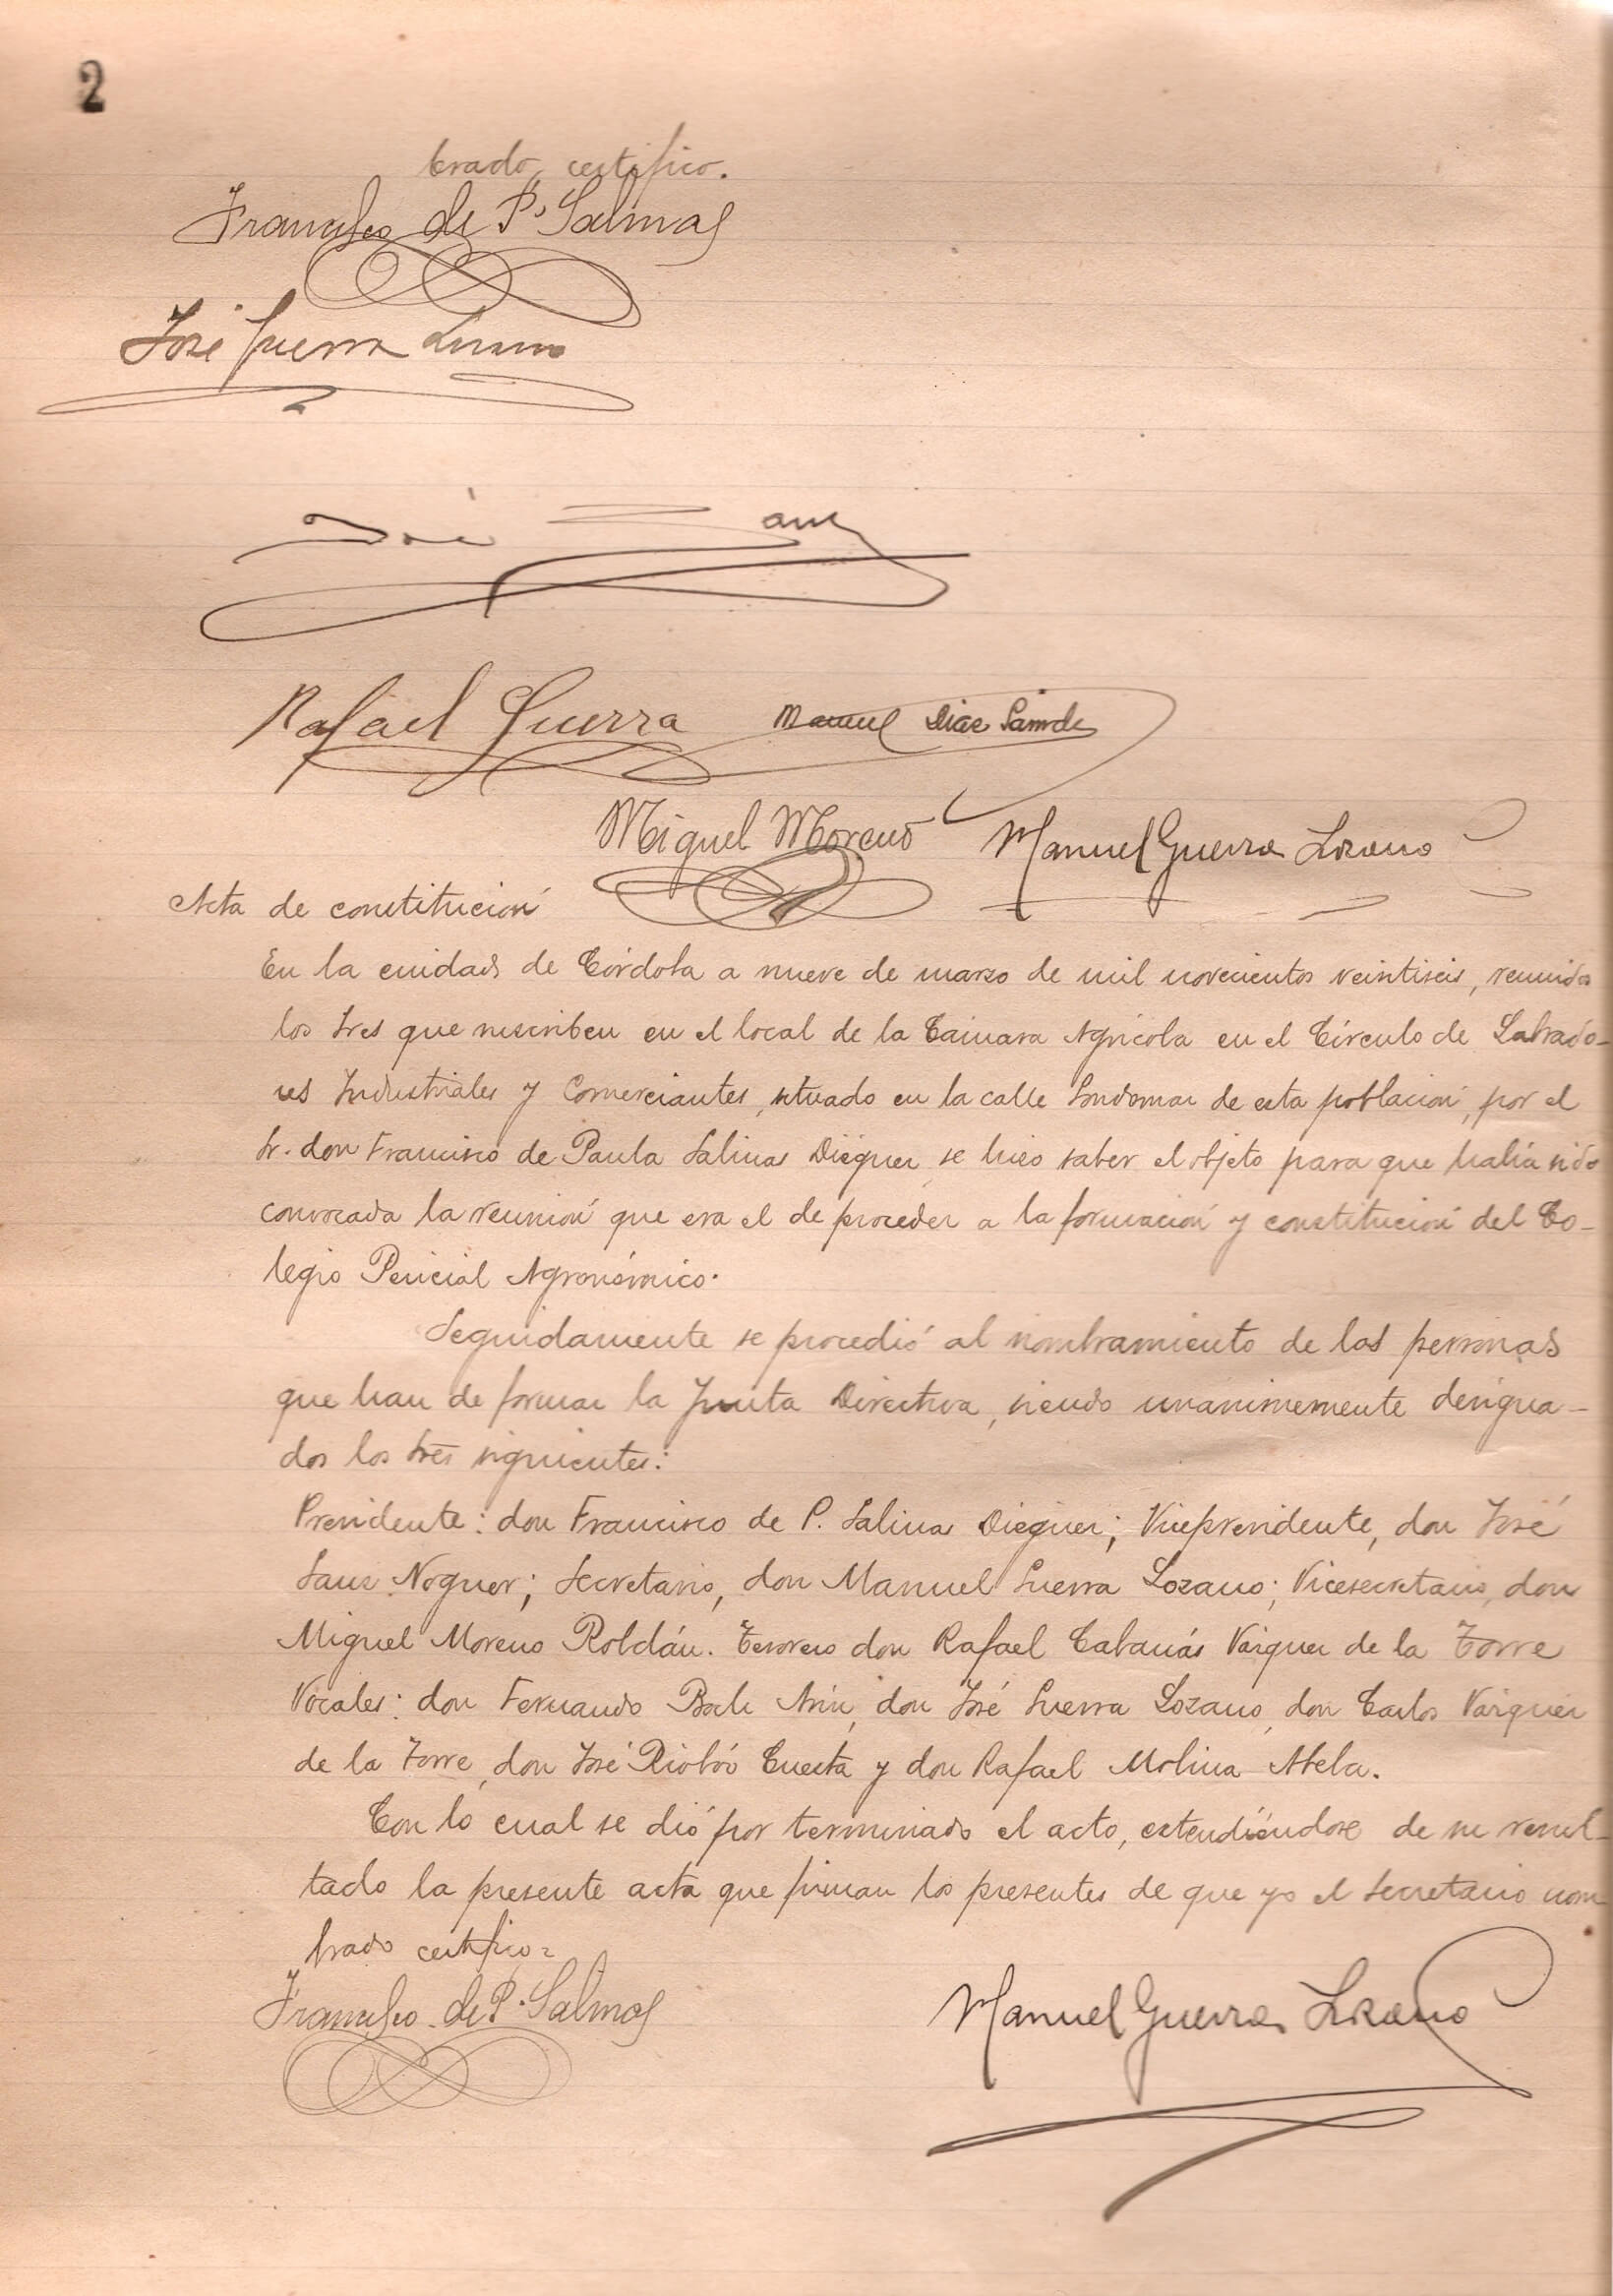 2
brado, certifico.
Francisco de P. Salinas
José Guerra Lozano
José Sanz
Rafael Guerra Manuel Diaz
Miguel Moreno Manuel Guerra Lozano
Acta de constitución
En la ciudad de Córdoba a nueve de marzo de mil novecientos veintiseis, reunidos
los Sres que suscriben en el local de la Cámara Agrícola en el Círculo de Labrado-
res Industriales y Comerciantes, situado en la calle Gondomar de esta población, por el
Sr. don Francisco de Paula Salinas Diéguez, se hizo saber el objeto para que había sido
convocada la reunión que era el de proceder a la formación y constitución del Co-
legio Pericial Agronómico.
Seguidamente se procedió al nombramiento de las personas
que han de formar la Junta Directiva, siendo unanimemente designa-
dos los Sres siguientes:
Presidente: don Francisco de P. Salina Dieguez; Vicepresidente, don José
Sanz Noguer; Secretario, don Manuel Guerra Lozano; Vicesecretario, don
Miguel Moreno Roldán. Tesorero don Rafael Cabanás Vázquez de la Torre
Vocales: don Fernando don José Guerra Lozano, don Carlos Vázquez
de la Torre, don José Riobóo Cuesta y don Rafael Molina Abela.
Con lo cual se dió por terminado el acto, extendiéndose de su resul-
tado la presente acta que firman los presentes de que yo el Secretario nom-
brado certifico=
Francisco de P. Salinas Manuel Guerra Lozano